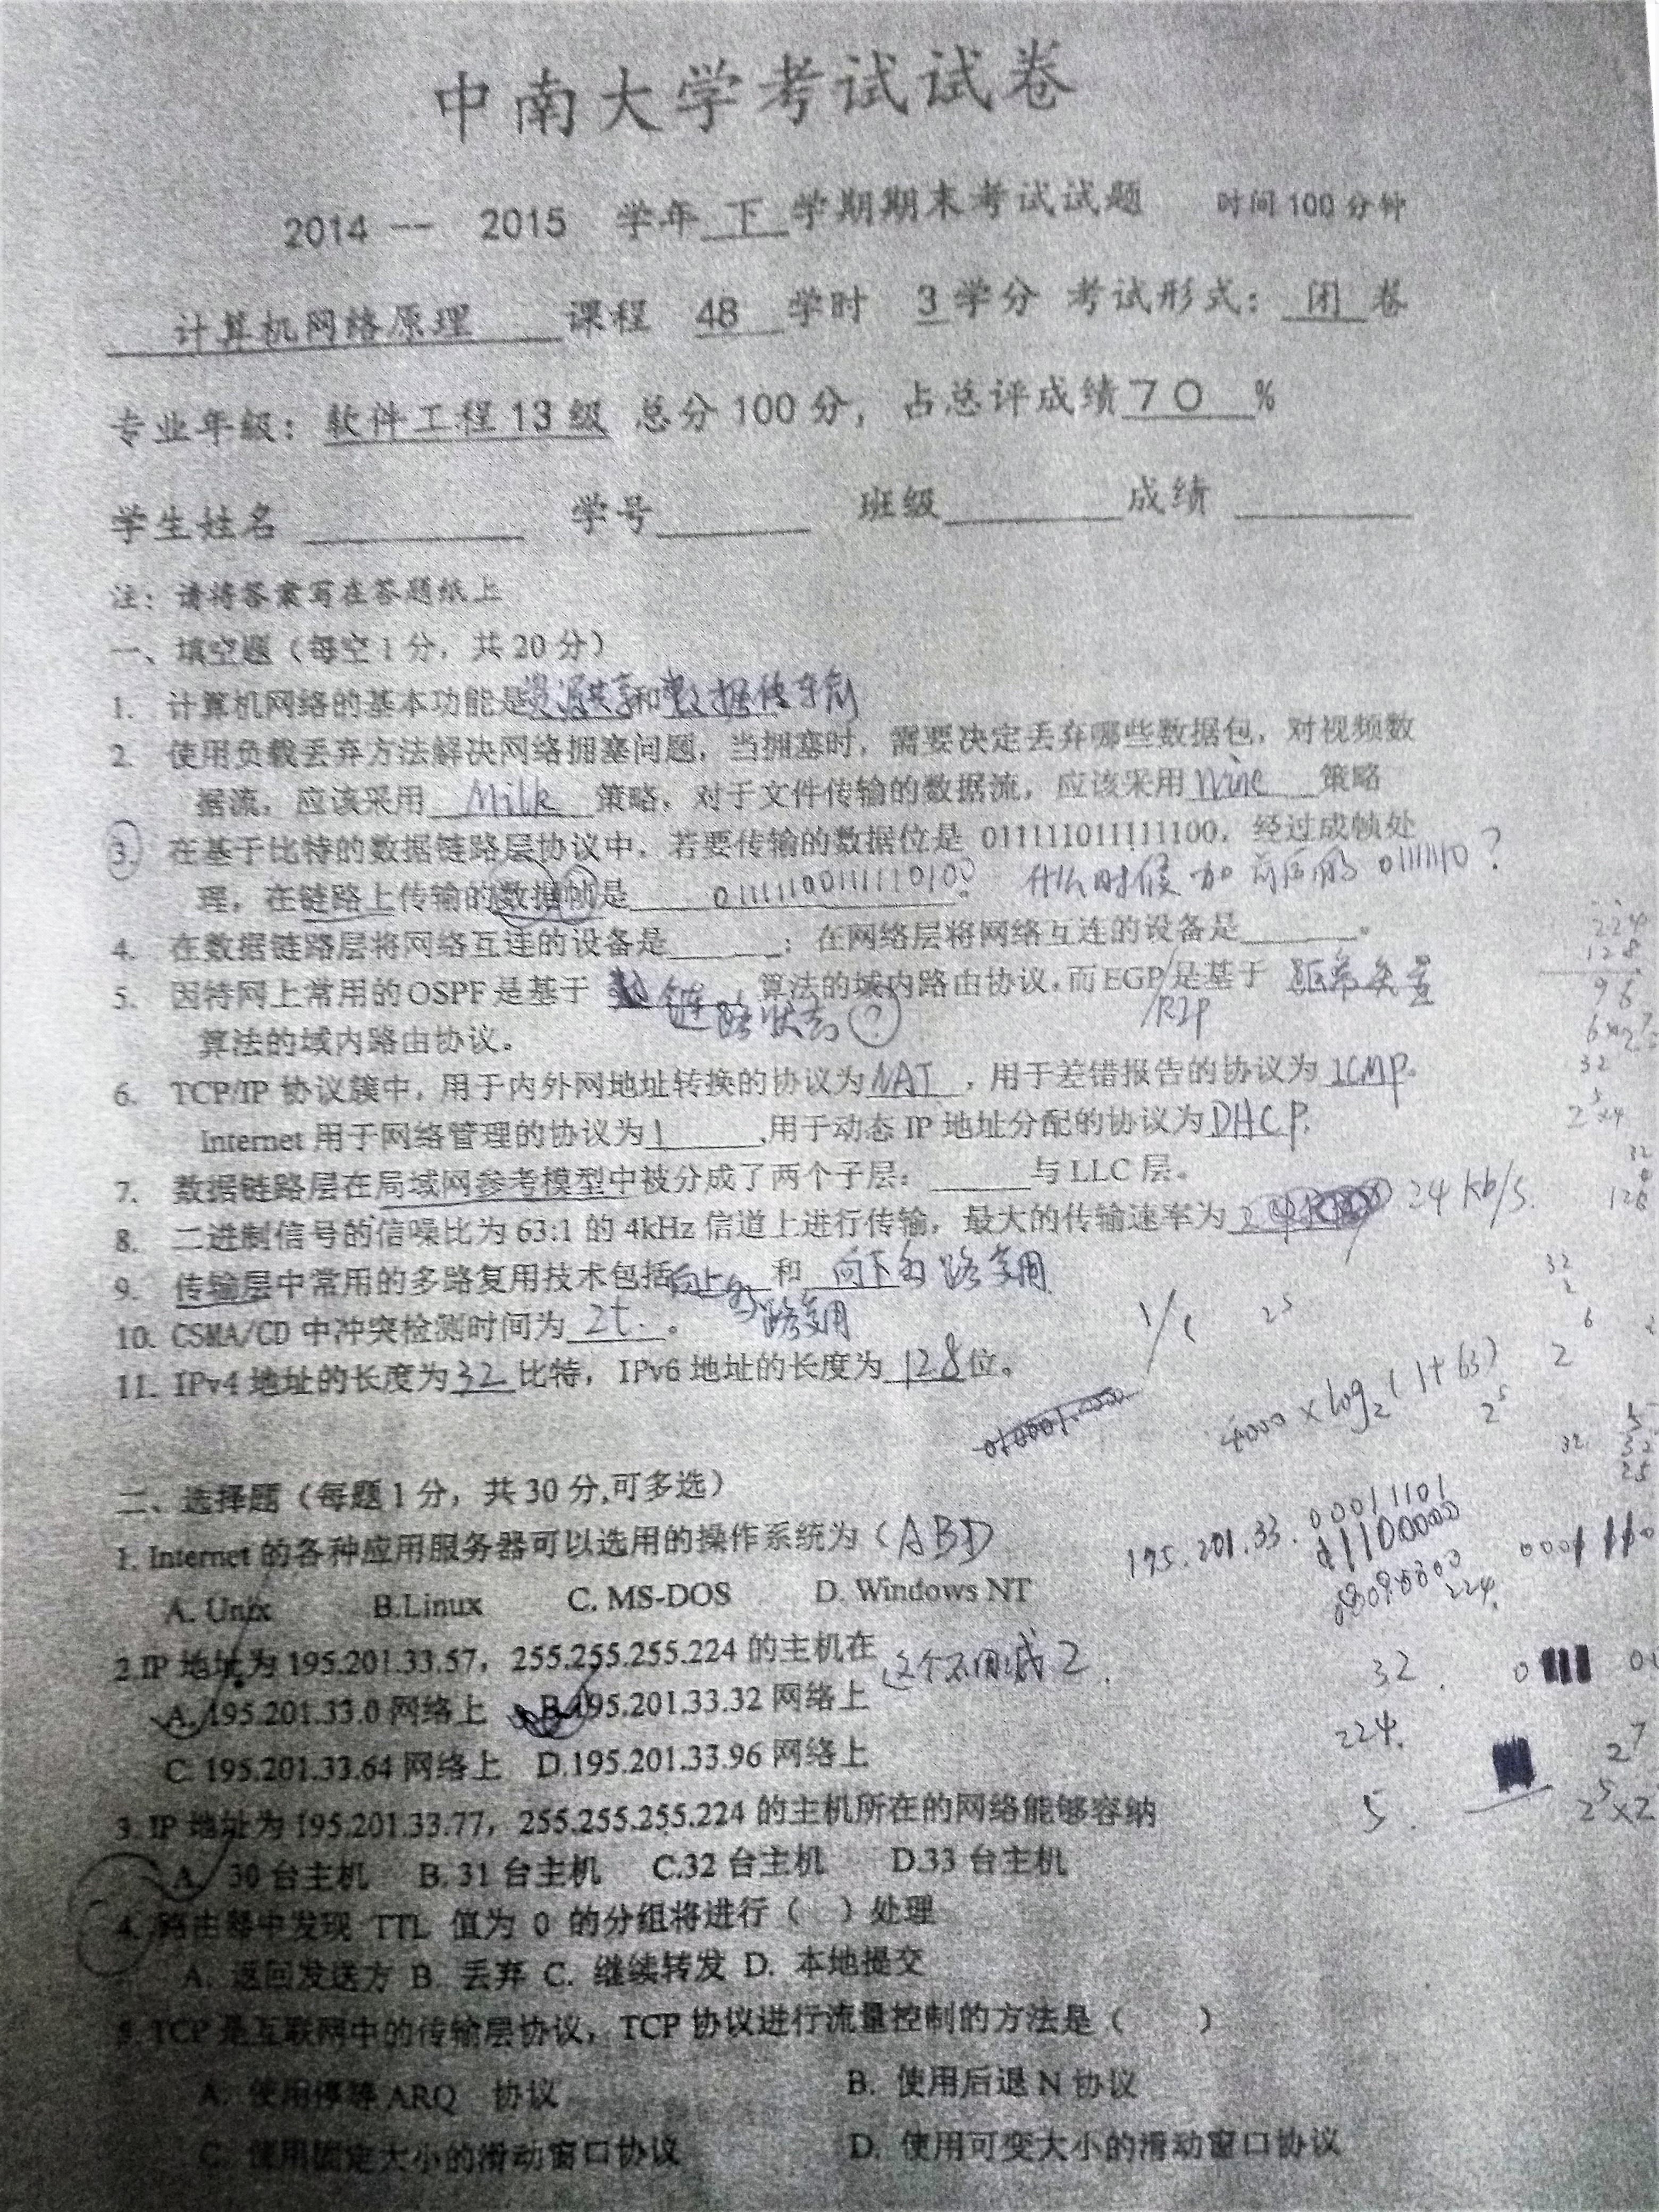 中南大学考试试卷
2014 -- 2015 学年 下 学期期末考试试题 时间100分钟
计算机网络原理 课程 48 学时 3 学分 考试形式：闭 卷
专业年级：软件工程13级 总分100分，占总评成绩 70 %
学生姓名 ______ 学号______ 班级______成绩 ______
注：请将答案写在答题纸上
一、填空题（每空1分，共20分）
1. 计算机网络的基本功能是资源共享和数据传输
2. 使用负载丢弃方法解决网络拥塞问题，当拥塞时，需要决定丢弃哪些数据包，对视频数
据流，应该采用 Milk 策略，对于文件传输的数据流，应该采用 Wine 策略
3. 在基于比特的数据链路层协议中，若要传输的数据位是 011111011111100，经过成帧处
理，在链路上传输的数据帧是 什么时候加前后的 01111110？
4. 在数据链路层将网络互连的设备是______；在网络层将网络互连的设备是______。
224
128
96
5. 因特网上常用的OSPF是基于 链路状态 算法的域内路由协议，而EGP是基于 距离矢量
/RIP
算法的域内路由协议。
32
6. TCP/IP 协议簇中，用于内外网地址转换的协议为NAT，用于差错报告的协议为 ICMP。
Internet 用于网络管理的协议为______,用于动态 IP 地址分配的协议为DHCP.
7. 数据链路层在局域网参考模型中被分成了两个子层：______与LLC层。
8. 二进制信号的信噪比为 63:1 的 4kHz 信道上进行传输，最大的传输速率为 24 kb/s.
9. 传输层中常用的多路复用技术包括向上的多路复用 和 向下多路复用
10. CSMA/CD 中冲突检测时间为 2t. 。
11. IPv4 地址的长度为 32 比特，IPv6 地址的长度为 128 位。
4000 × log2 (1+63)
二、选择题（每题1分，共30分,可多选）
1. Internet 的各种应用服务器可以选用的操作系统为（ABD
A. Unix B.Linux C. MS-DOS D. Windows NT
195.201.33. 00011101
2.IP 地址为 195.201.33.57，255.255.255.224 的主机在 这个不用减2.
A. 195.201.33.0 网络上 B.195.201.33.32 网络上
C. 195.201.33.64 网络上 D.195.201.33.96 网络上
32
224.
5.
3. IP 地址为 195.201.33.77，255.255.255.224 的主机所在的网络能够容纳
A. 30 台主机 B. 31 台主机 C.32 台主机 D.33 台主机
4. 路由器中发现 TTL 值为 0 的分组将进行（ ）处理
A. 返回发送方 B. 丢弃 C. 继续转发 D. 本地提交
5. TCP 是互联网中的传输层协议，TCP 协议进行流量控制的方法是（ ）
A. 使用停等 ARQ 协议 B. 使用后退 N 协议
C. 使用固定大小的滑动窗口协议 D. 使用可变大小的滑动窗口协议